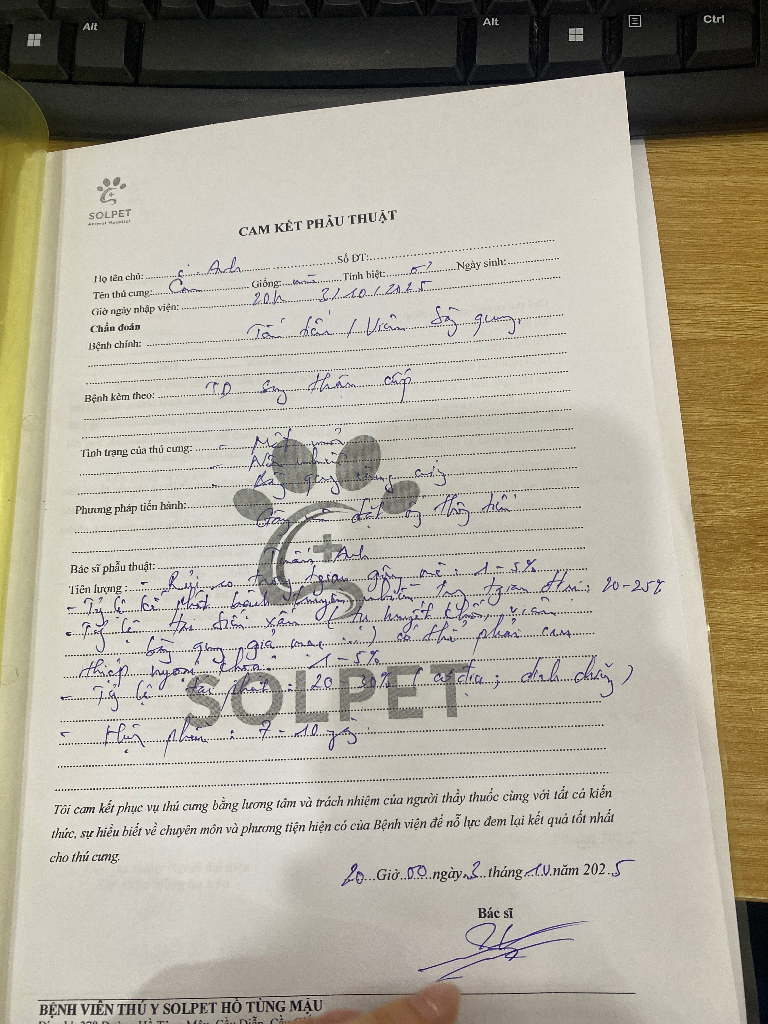 Alt
Alt
Ctrl
SOLPET
Animal Hospital
CAM KẾT PHẪU THUẬT
Họ tên chủ: C. Anh Số ĐT:
Tên thú cưng: Cam Giống: mèo Tính biệt: ♂ Ngày sinh:
Giờ ngày nhập viện: 20h 3/10/2025
Chẩn đoán
Bệnh chính: Tắc tiểu / Viêm bàng quang
Bệnh kèm theo: TD suy thận cấp
Tình trạng của thú cưng: - Mệt mỏi
- Nôn nhiều
- Bàng quang căng cứng
Phương pháp tiến hành: Gây mê đặt ống thông tiểu
Bác sĩ phẫu thuật: Anh
Tiên lượng: - Rủi ro trong tgian gây mê: 1-5%
- Tỷ lệ kế phát bệnh truyền nhiễm tgian: 20-25%
- Tỷ lệ xấu (viêm
bàng quang giả mạc ...) có thể phải can
thiệp ngoại khoa: 1-5%
- Tỷ lệ tái phát: 20 30% (cơ địa; dinh dưỡng)
- Hậu phẫu: 7-10 ngày
SOLPET
Tôi cam kết phục vụ thú cưng bằng lương tâm và trách nhiệm của người thầy thuốc cùng với tất cả kiến
thức, sự hiểu biết về chuyên môn và phương tiện hiện có của Bệnh viện để nỗ lực đem lại kết quả tốt nhất
cho thú cưng.
20 Giờ 00 ngày 3 tháng 10 năm 2025
Bác sĩ
BỆNH VIỆN THÚ Y SOLPET HỒ TÙNG MẬU